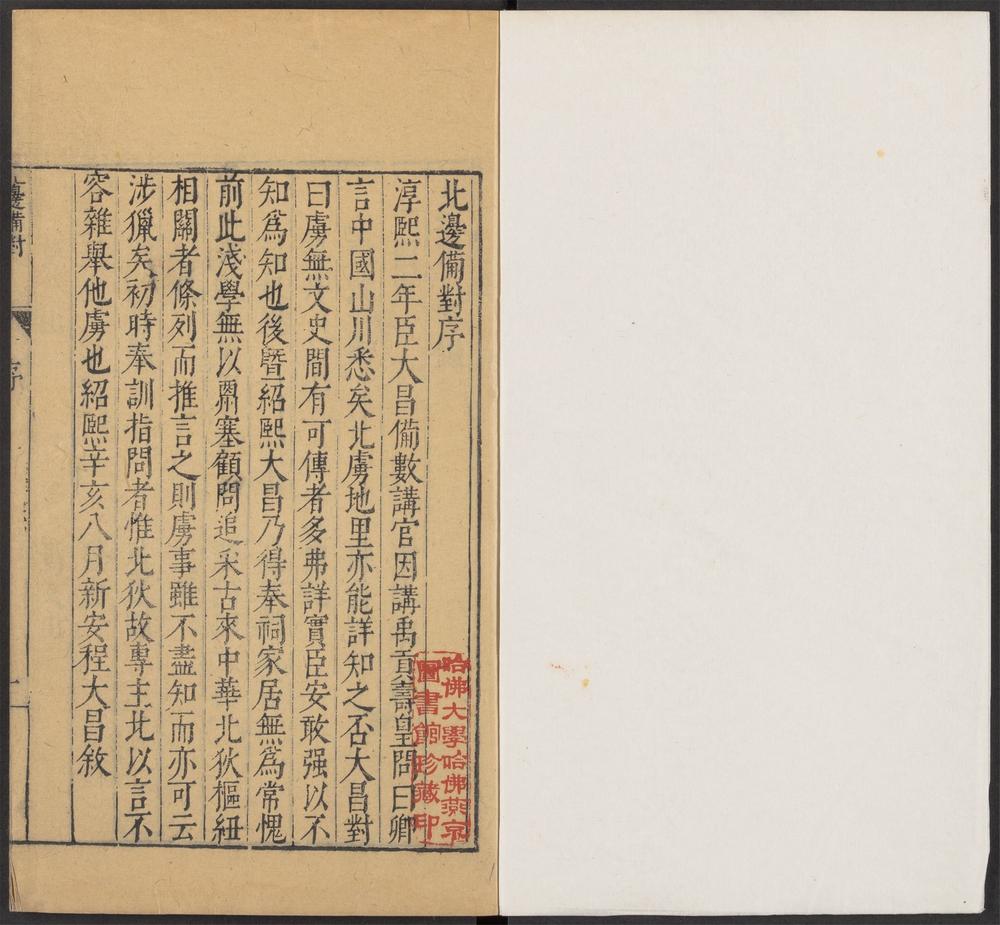 北邊備對序
淳熙二年臣大昌備數講官因講禹貢壽皇問曰卿
言中國山川悉矣北虜地里亦能詳知之否大昌對
曰虜無文史間有可傳者多弗詳實臣安敢强以不
知爲知也後暨紹熙大昌乃得奉祠家居無爲常愧
前此淺學無以㓻塞顧問追采古來中華北狄樞紐
相關者條列而推言之則虜事雖不盡知而亦可云
涉獵矣初時奉訓指問者惟北狄故專主北以言不
容雜舉他虜也紹熙辛亥八月新安程大昌敘
邊備對
序
一
哈佛大學哈佛燕京
圖書館珍藏印